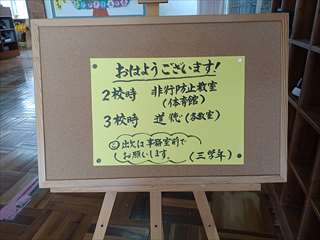 おはようございます!
2校時 非行防止教室
(体育館)
3校時 道徳(各教室)
◎出欠は事務室前で
お願いします。
(三学年)